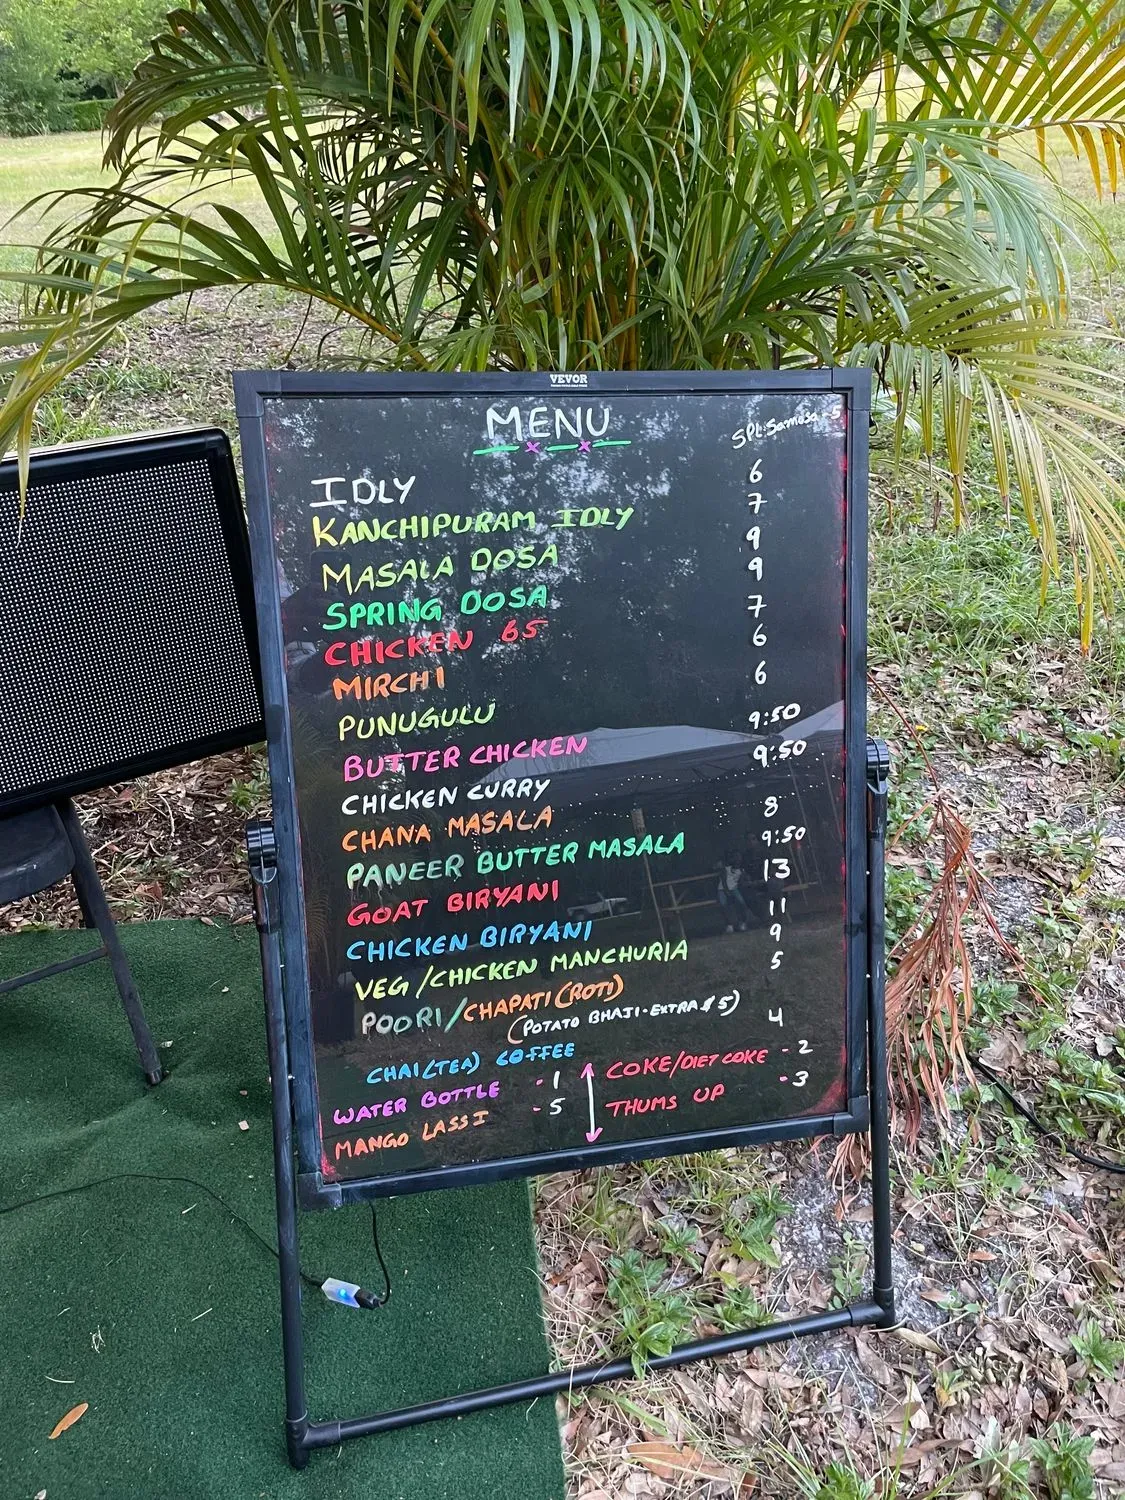 VEVOR
MENU
SPL. Samosa 5
IDLY 6
KANCHIPURAM IDLY 7
MASALA DOSA 9
SPRING DOSA 9
CHICKEN 65 7
MIRCHI 6
PUNUGULU 6
BUTTER CHICKEN 9:50
CHICKEN CURRY 9:50
CHANA MASALA 8
PANEER BUTTER MASALA 9:50
GOAT BIRYANI 13
CHICKEN BIRYANI 11
VEG/CHICKEN MANCHURIA 9
POORI/CHAPATI (ROTI) 5
(POTATO BHAJI-EXTRA $5)
CHAI(TEA) COFFEE 4
WATER BOTTLE - 1
MANGO LASSI - 5
COKE/DIET COKE - 2
THUMS UP - 3